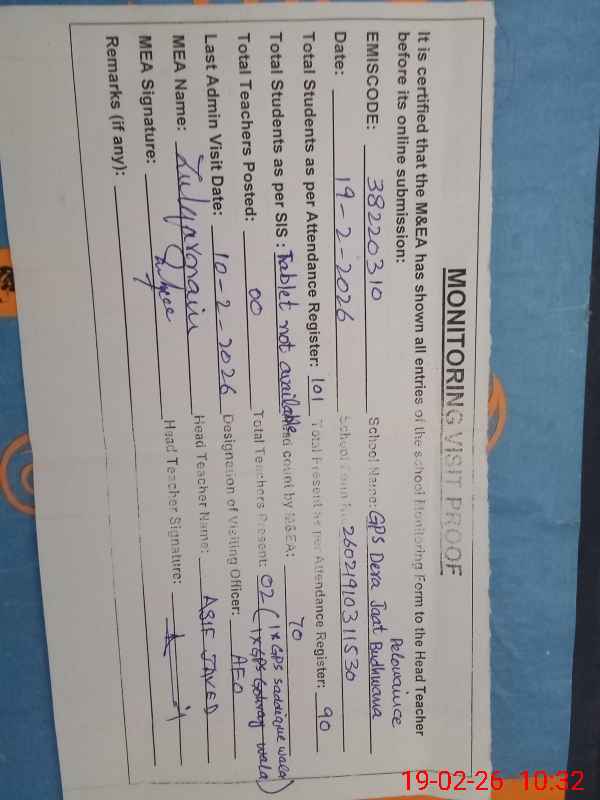 MONITORING VISIT PROOF
It is certified that the M&EA has shown all entries of the school Monitoring Form to the Head Teacher
before its online submission:
EMISCODE: 38220310 School Name: GPS Dera Jaat Budhwana
Date: 19-2-2026 School 26021910311530
Total Students as per Attendance Register: 101 Total Present as per Attendance Register: 90
Total Students as per SIS: Tablet not available Head count by M&EA: 70
Total Teachers Posted: 00 Total Teachers Present: 02 (1xGPS Saddique wala
1xGPS wala)
Last Admin Visit Date: 10-2-2026 Designation of Visiting Officer: AEO
MEA Name: Head Teacher Name: ASIF JAVED
MEA Signature: Head Teacher Signature:
Remarks (if any):
19-02-26 10:32